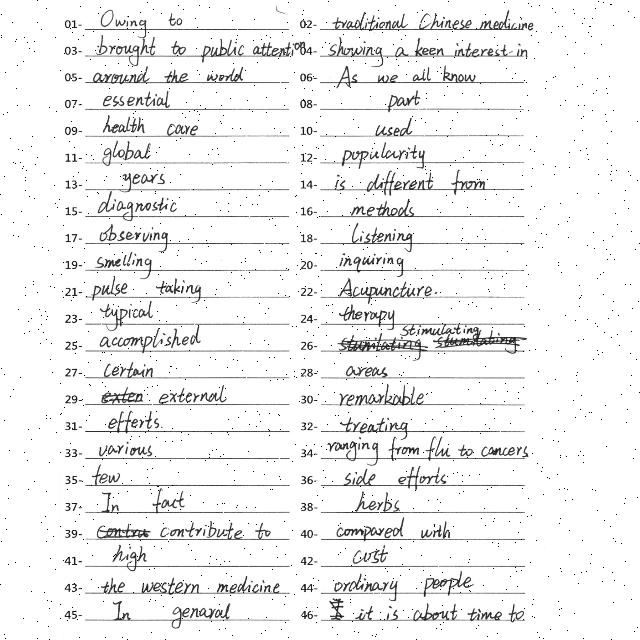 01- Owing to
02- traditional Chinese medicine
03- brought to public attention
04- showing a keen interest in
05- around the world
06- As we all know
07- essential
08- part
09- health care
10- used
11- global
12- popularity
13- years
14- is different from
15- diagnostic
16- methods
17- observing
18- listening
19- smelling
20- inquiring
21- pulse taking
22- Acupuncture.
23- typical
24- therapy
25- accomplished
26- stimulating
27- certain
28- areas
29- external
30- remarkable
31- efferts
32- treating
33- various
34- ranging from flu to cancers
35- few
36- side efforts
37- In fact
38- herbs
39- contribute to
40- compared with
41- high
42- cust
43- the western medicine
44- ordinary people
45- In genaral
46- it is about time to